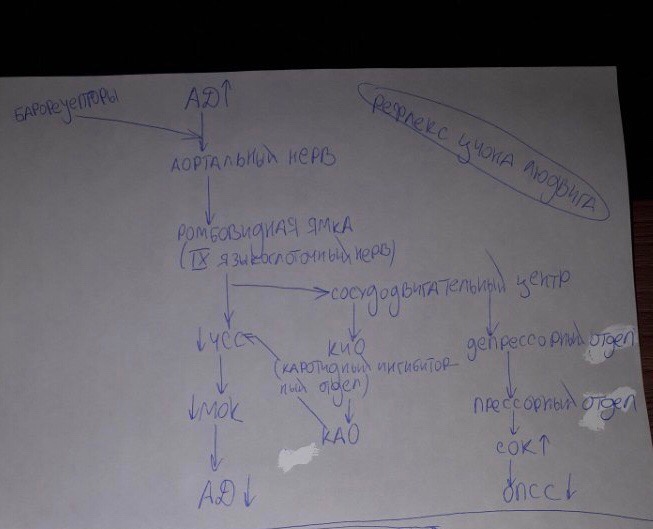 АД↑
БАРОРЕЦЕПТОРЫ
РЕФЛЕКС ЦИОНА ЛЮДВИГА
АОРТАЛЬНЫЙ НЕРВ
РОМБОВИДНАЯ ЯМКА
(IX ЯЗЫКОГЛОТОЧНЫЙ НЕРВ)
СОСУДОДВИГАТЕЛЬНЫЙ ЦЕНТР
↓ЧСС
КИО
ДЕПРЕССОРНЫЙ ОТДЕЛ
(КАРОТИДНЫЙ ИНГИБИТОР
НЫЙ ОТДЕЛ)
↓МОК
КАО
ПРЕССОРНЫЙ ОТДЕЛ
СОК↑
АД↓
ОПСС↓